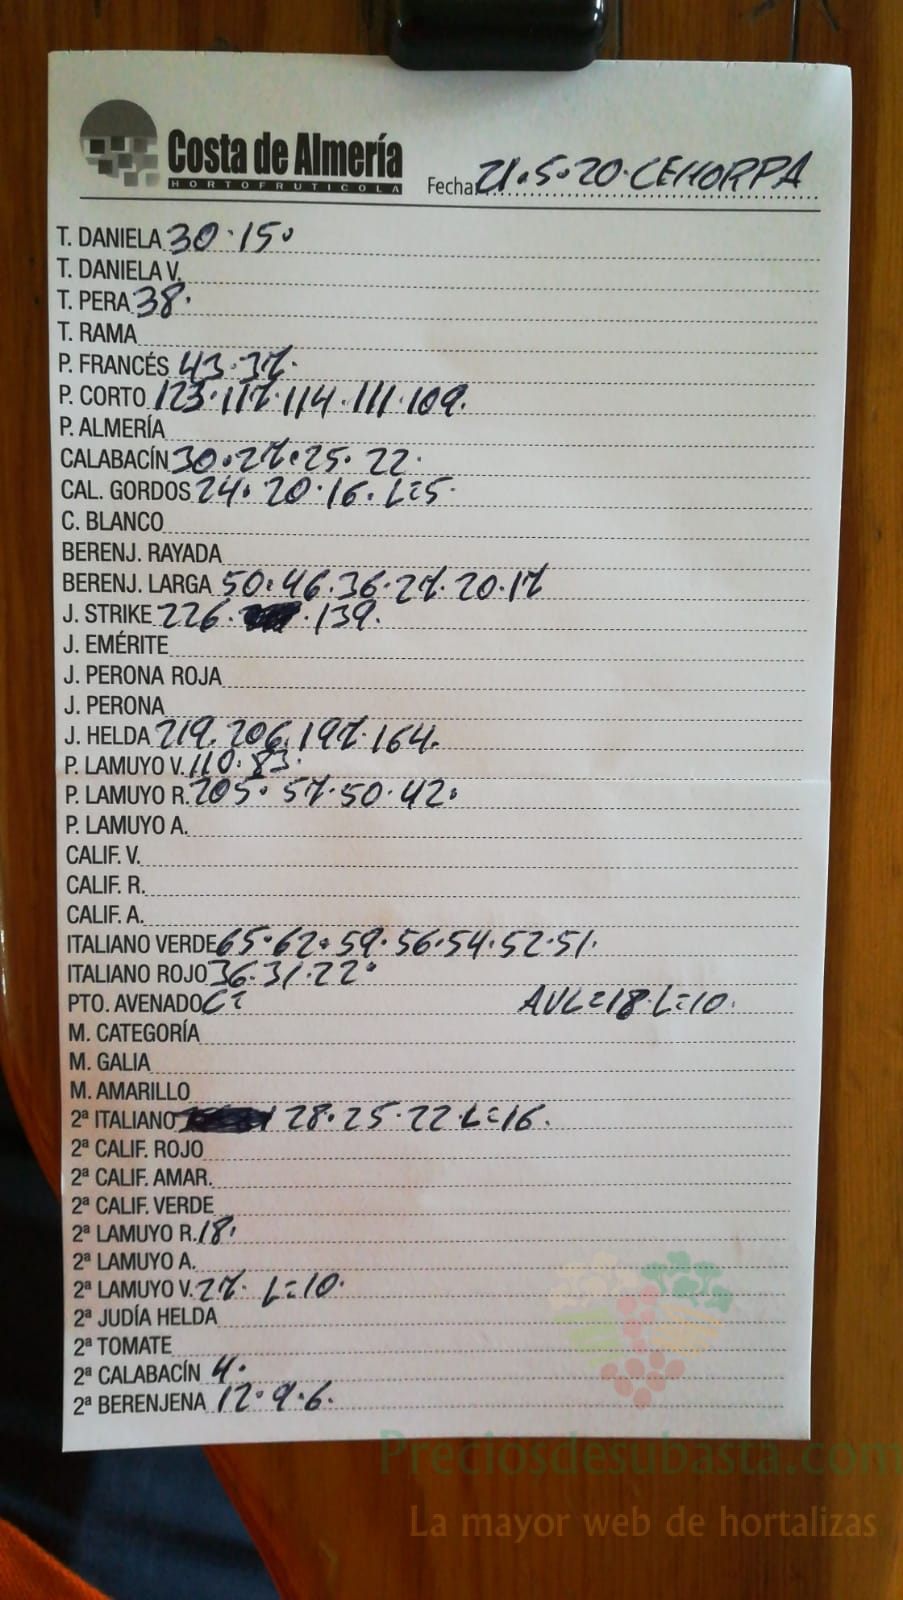 Costa de Almería
HORTOFRUTICOLA
Fecha 21.5.20. CEHORPA
T. DANIELA 30.15.
T. DANIELA V.
T. PERA 38.
T. RAMA
P. FRANCÉS 43.37.
P. CORTO 123.117.114.111.109.
P. ALMERÍA
CALABACÍN 30.27.25.22.
CAL. GORDOS 24.20.16. L=5.
C. BLANCO
BERENJ. RAYADA
BERENJ. LARGA 50.46.36.27.20.17
J. STRIKE 226. .139.
J. EMÉRITE
J. PERONA ROJA
J. PERONA
J. HELDA 219.206.197.164.
P. LAMUYO V. 110.83.
P. LAMUYO R. 205.57.50.42.
P. LAMUYO A.
CALIF. V.
CALIF. R.
CALIF. A.
ITALIANO VERDE 65.62.59.56.54.52.51.
ITALIANO ROJO 36.31.22.
PTO. AVENADO C= AVL=18.L=10.
M. CATEGORÍA
M. GALIA
M. AMARILLO
2ª ITALIANO 28.25.22 L=16.
2ª CALIF. ROJO
2ª CALIF. AMAR.
2ª CALIF. VERDE
2ª LAMUYO R. 18.
2ª LAMUYO A.
2ª LAMUYO V. 27. L=10.
2ª JUDÍA HELDA
2ª TOMATE
2ª CALABACÍN 4.
2ª BERENJENA 12.9.6.
Preciosdesubasta.com
La mayor web de hortalizas